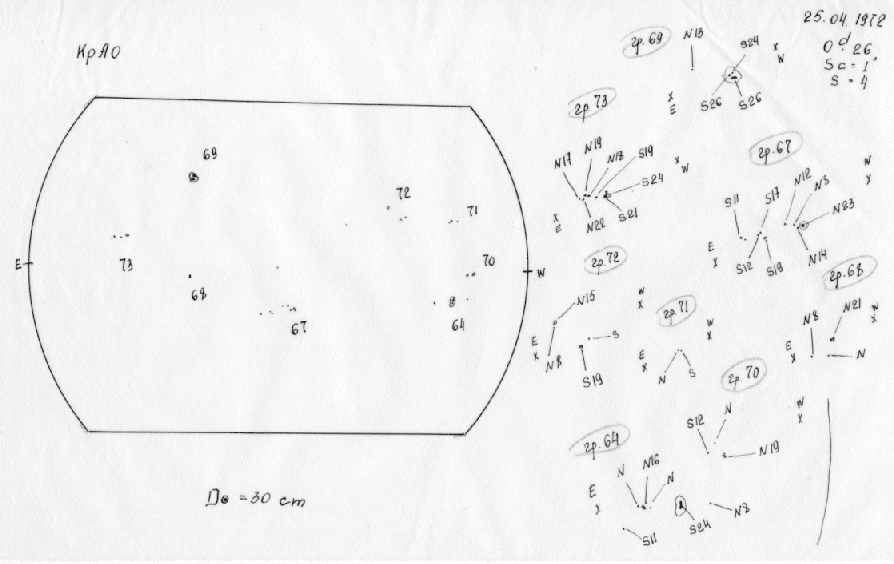 25.04.1972
0ᵈ.26
Sc = 1"
S = 4
КрАО
69
72
71
E
73
68
70
W
67
64
D⊙ = 30 cm
гр.69
N13
S24
x
W
x
E
S26
S26
гр.73
N17
N19
N18
S19
S24
x
W
x
E
N22
S21
гр.67
S11
S17
N12
N3
N23
W
x
E
x
S12
S18
N14
гр.72
N15
W
x
E
x
N8
S19
S
гр.71
W
x
E
x
N
S
гр.68
N8
N21
W
x
E
x
N
гр.70
S12
N
W
x
N19
гр.64
N
N16
N
E
x
S11
S24
N8